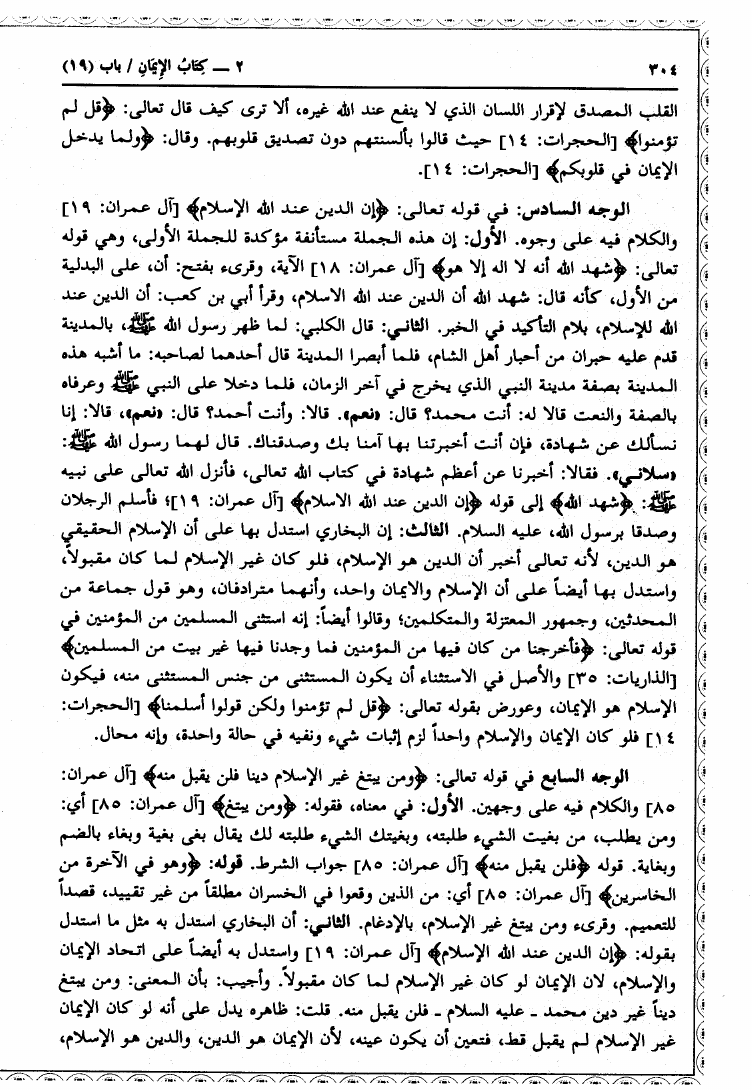 ٣٠٤ ٢ ــ كِتَابُ الإِيمَانِ / باب (١٩)
القلب المصدق لإقرار اللسان الذي لا ينفع عند الله غيره، ألا ترى كيف قال تعالى: ﴿قل لم
تؤمنوا﴾ [الحجرات: ١٤] حيث قالوا بألسنتهم دون تصديق قلوبهم. وقال: ﴿ولما يدخل
الإيمان في قلوبكم﴾ [الحجرات: ١٤].
الوجه السادس: في قوله تعالى: ﴿إن الدين عند الله الإسلام﴾ [آل عمران: ١٩]
والكلام فيه على وجوه. الأول: إن هذه الجملة مستأنفة مؤكدة للجملة الأولى، وهي قوله
تعالى: ﴿شهد الله أنه لا اله إلا هو﴾ [آل عمران: ١٨] الآية، وقرىء بفتح: أن، على البدلية
من الأول، كأنه قال: شهد الله أن الدين عند الله الاسلام، وقرأ أبي بن كعب: أن الدين عند
الله للإسلام، بلام التأكيد في الخبر. الثاني: قال الكلبي: لما ظهر رسول الله ﷺ، بالمدينة
قدم عليه حبران من أحبار أهل الشام، فلما أبصرا المدينة قال أحدهما لصاحبه: ما أشبه هذه
المدينة بصفة مدينة النبي الذي يخرج في آخر الزمان، فلما دخلا على النبي ﷺ وعرفاه
بالصفة والنعت قالا له: أنت محمد؟ قال: «نعم». قالا: وأنت أحمد؟ قال: «نعم»، قالا: إنا
نسألك عن شهادة، فإن أنت أخبرتنا بها آمنا بك وصدقناك. قال لهما رسول الله ﷺ:
«سلاني». فقالا: أخبرنا عن أعظم شهادة في كتاب الله تعالى، فأنزل الله تعالى على نبيه
ﷺ: ﴿شهد الله﴾ إلى قوله ﴿إن الدين عند الله الاسلام﴾ [آل عمران: ١٩]؛ فأسلم الرجلان
وصدقا برسول الله، عليه السلام. الثالث: إن البخاري استدل بها على أن الإسلام الحقيقي
هو الدين، لأنه تعالى أخبر أن الدين هو الإسلام، فلو كان غير الإسلام لما كان مقبولاً،
واستدل بها أيضاً على أن الإسلام والايمان واحد، وأنهما مترادفان، وهو قول جماعة من
المحدثين، وجمهور المعتزلة والمتكلمين؛ وقالوا أيضاً: إنه استثنى المسلمين من المؤمنين في
قوله تعالى: ﴿فأخرجنا من كان فيها من المؤمنين فما وجدنا فيها غير بيت من المسلمين﴾
[الذاريات: ٣٥] والأصل في الاستثناء أن يكون المستثنى من جنس المستثنى منه، فيكون
الإسلام هو الإيمان، وعورض بقوله تعالى: ﴿قل لم تؤمنوا ولكن قولوا أسلمنا﴾ [الحجرات:
١٤] فلو كان الإيمان والإسلام واحداً لزم إثبات شيء ونفيه في حالة واحدة، وإنه محال.
الوجه السابع في قوله تعالى: ﴿ومن يبتغ غير الإسلام دينا فلن يقبل منه﴾ [آل عمران:
٨٥] والكلام فيه على وجهين. الأول: في معناه، فقوله: ﴿ومن يبتغ﴾ [آل عمران: ٨٥] أي:
ومن يطلب، من بغيت الشيء طلبته، وبغيتك الشيء طلبته لك يقال بغى بغية وبغاء بالضم
وبغاية. قوله ﴿فلن يقبل منه﴾ [آل عمران: ٨٥] جواب الشرط. قوله: ﴿وهو في الآخرة من
الخاسرين﴾ [آل عمران: ٨٥] أي: من الذين وقعوا في الخسران مطلقاً من غير تقييد، قصداً
للتعميم. وقرىء ومن يبتغ غير الإسلام، بالإدغام. الثاني: أن البخاري استدل به مثل ما استدل
بقوله: ﴿إن الدين عند الله الإسلام﴾ [آل عمران: ١٩] واستدل به أيضاً على اتحاد الإيمان
والإسلام، لان الإيمان لو كان غير الإسلام لما كان مقبولاً. وأجيب: بأن المعنى: ومن يبتغ
ديناً غير دين محمد ـ عليه السلام ـ فلن يقبل منه. قلت: ظاهره يدل على أنه لو كان الإيمان
غير الإسلام لم يقبل قط، فتعين أن يكون عينه، لأن الإيمان هو الدين، والدين هو الإسلام،